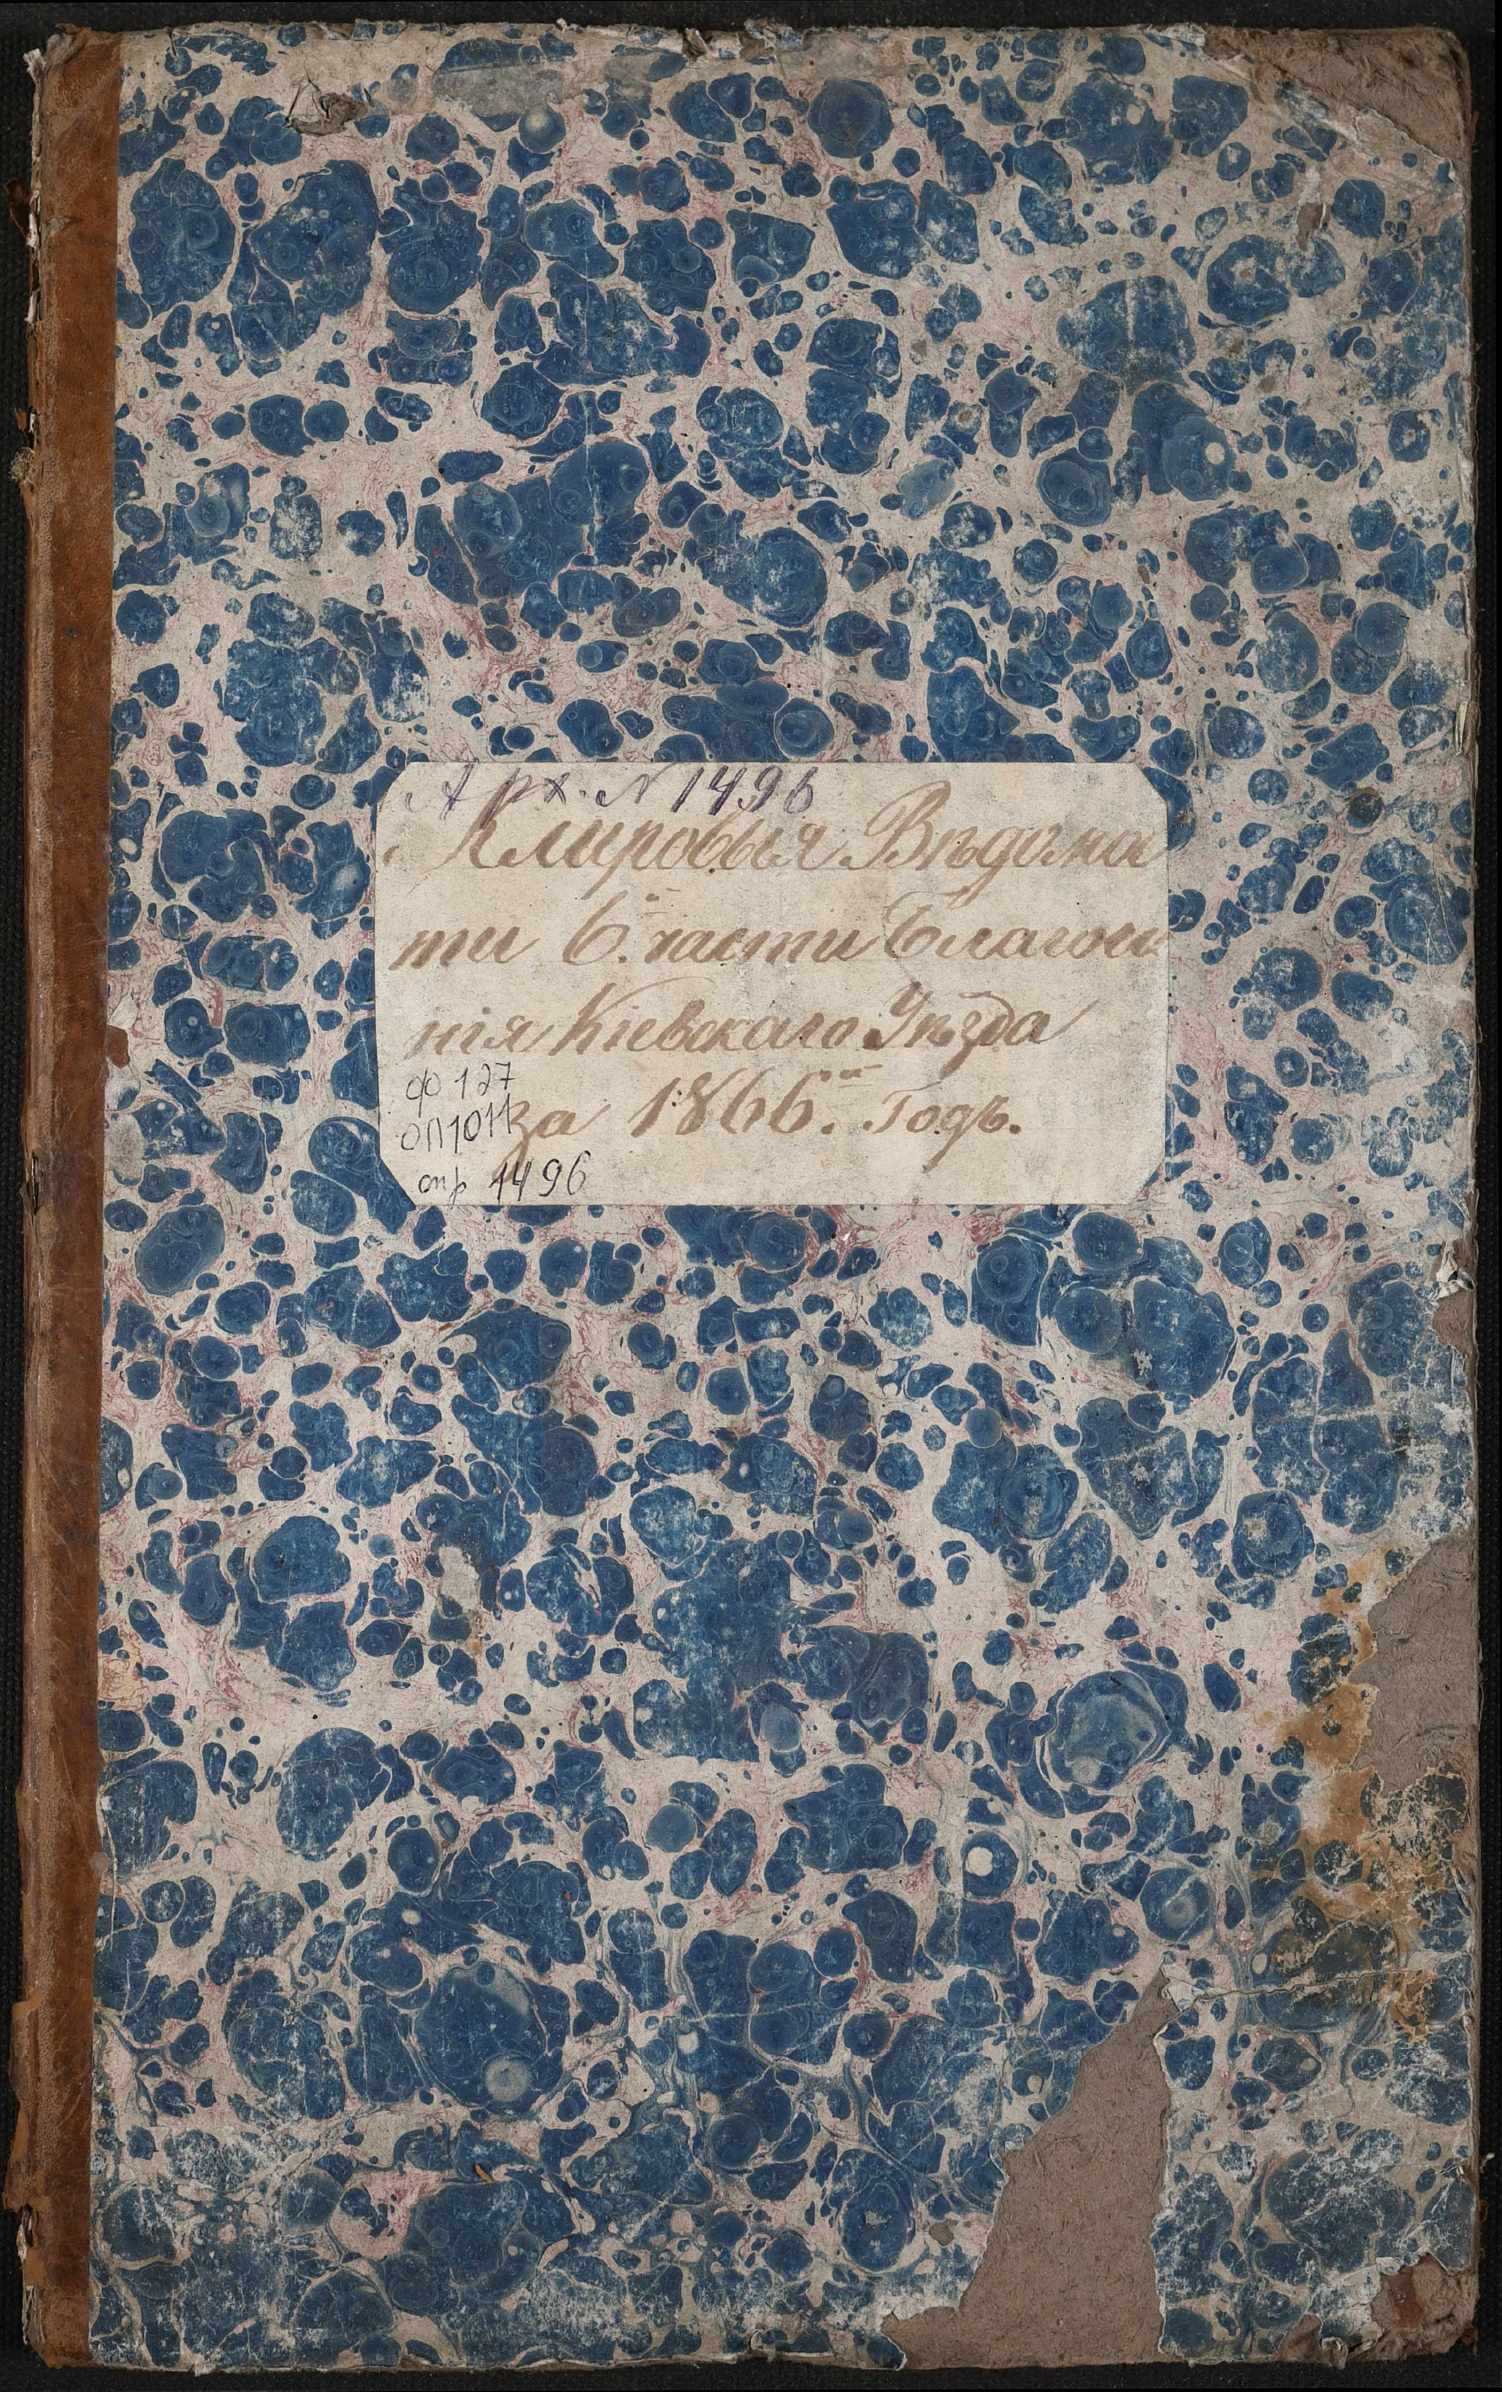 Арх. № 1496
Клировыя Вѣдомо
сти 6й части Благочи
нія Кіевскаго Уѣзда
за 1866й Годъ.
ф 127
оп 1011
спр 1496